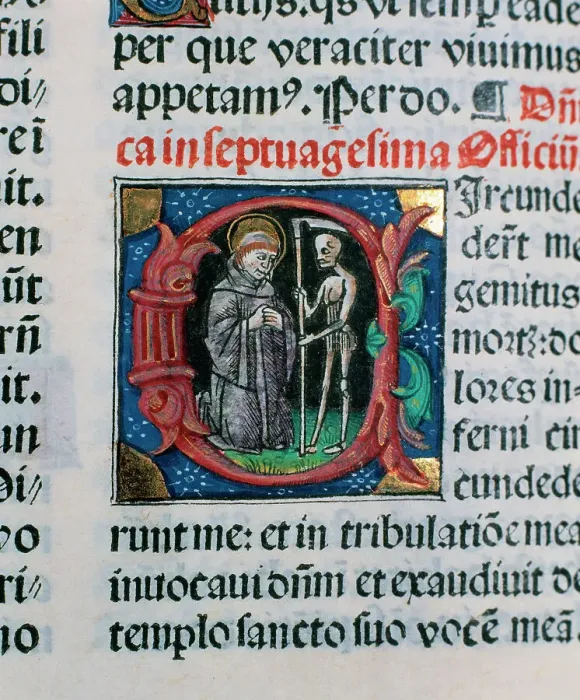 fili
di//
reī
it.
en
ūt
rn̄
it.
un
Di//
vo
ri//
no
semp eade
per que veraciter viuimus
appetamꝰ. Per do. ¶ Dn̄i
ca in septuagesima Officiū
CIrcunde
der̄t me
gemitus
mortꝫ: do
lores in-
ferni cir
cundede
runt me: et in tribulatiōe mea
inuocaui dn̄m et exaudiuit de
templo sancto suo vocē meā.